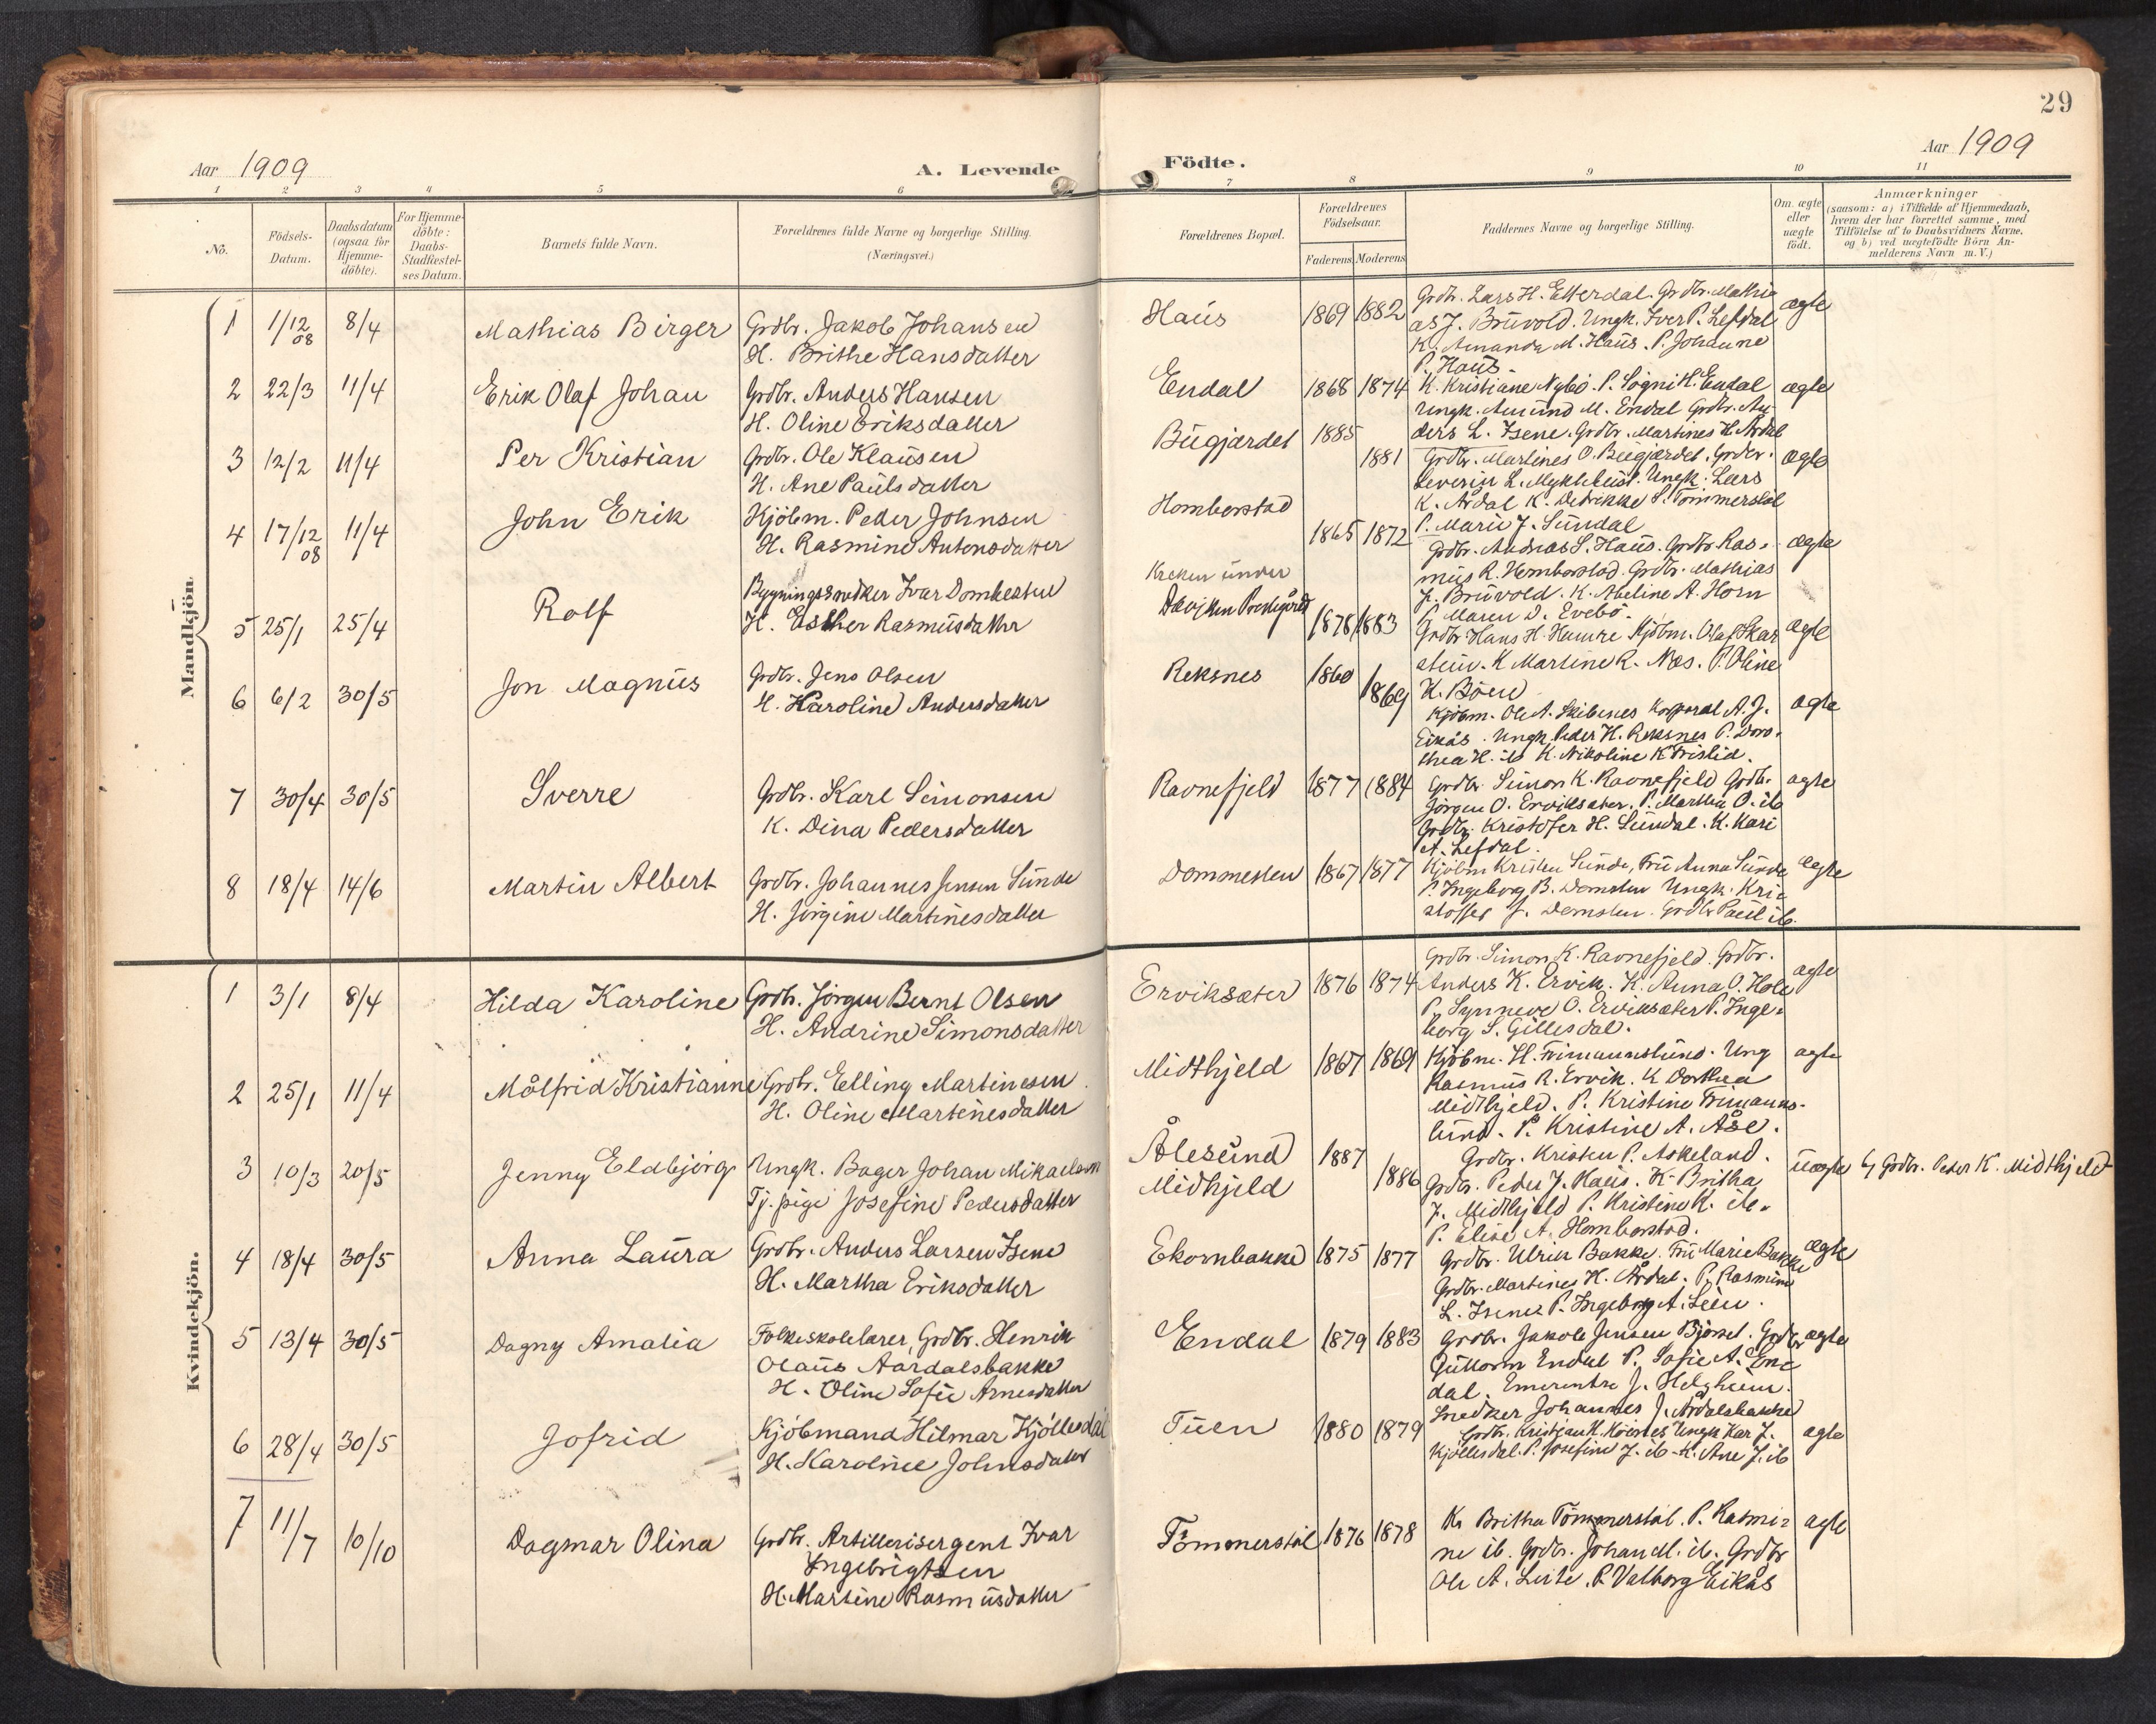 29
Aar 1909
A. Levende
Födte.
Aar 1909
1 2 3 4 5 6 7 8 9 10 11
No.
Födsels-Datum.
Daabsdatum (ogsaa for Hjemmedöbte).
For Hjemmedöbte: Daabs-Stadfæstelses Datum.
Barnets fulde Navn.
Forældrenes fulde Navne og borgerlige Stilling.
(Næringsvei.)
Forældrenes Bopæl.
Forældrenes Födselsaar.
Faderens Moderens
Faddernes Navne og borgerlige Stilling.
Om ægte eller uægte födt.
Anmærkninger
(saasom: a) i Tilfælde af Hjemmedaab, hvem der har forrettet samme, med Tilföielse af to Daabsvidners Navne, og b) ved uægtefödte Börn Anmelderens Navn m.V.)
Mandkjön.
1 1/12 08 8/4 Mathias Birger Grdbr. Jakob Johansen
H. Brithe Hansdatter
Haus 1869 1882 Grdb. Lars H. Etterdal. Grdbr. Mathi
as J. Bruvold. Ungk. Iver P. Lefdal
K. Amanda M. Haus. P. Johanne
P. Haus.
ægte
2 22/3 11/4 Erik Olaf Johan Grdbr. Anders Hansen
H. Oline Eriksdatter
Endal 1868 1874 K. Kristiane Nybö. P. Sogni H. Endal
Ungk. Amund M. Endal Grdbr. An
ders L. Isene. Grdbr. Martines H. Årdal
ægte
3 12/2 11/4 Per Kristian Grdbr. Ole Klausen
H. Ane Paulsdatter
Bugjærdet 1885 1881 Grdbr. Martines O. Bugjærdet. Grdbr.
Severin L. Myklebust. Ungk. Lars
K. Årdal K. Dedrikke S. Tömmerstöl
P. Marie J. Sundal
ægte
4 17/12 08 11/4 John Erik Kjöbm. Peder Johnsen
H. Rasmine Antonsdatter
Homborstad 1865 1872 Grdbr. Andreas S. Haus. Grdbr Ras-
mus R. Homborstad. Grdbr. Mathias
J. Bruvold. K. Abeline A. Horn
P. Maren D. Evebö.
ægte
5 25/1 25/4 Rolf Bygningssnedker Ivar Domhesten
H. Esther Rasmusdatter
under
Davjken Prestegård 1878 1883 Grdbr Hans H. Hamre Kjöbm. Olaf Skar
stein. K Martine R. Nes. P. Oline
K. Böen
ægte
6 6/2 30/5 Jon Magnus Grdbr. Jens Olsen
H. Karoline Andersdatter
Reksnes 1860 1869 Kjöbm. Ole A. Skibenes Korporal A. J.
Eikås. Ungk. Peder H. Reksnes P. Doro-
thea H. ib K. Nikoline K
ægte
7 30/4 30/5 Sverre Grdbr. Karl Simonsen
K. Dina Pedersdatter
Ravnefjeld 1877 1884 Grdbr. Simon K. Ravnefjeld Grdb.
Jörgen O. Erviksæter. P. Marthe O. ib
Grdbr. Kristofer H. Sundal. K. Kari
A. Lefdal.
ægte
8 18/4 14/6 Martin Albert Grdbr. Johannes Jensen Sunde
H. Jörgine Martinesdatter
Dommesten 1867 1877 Kjöbm Kristen Sunde, Fru Anna Sunde
P. Ingeborg B. Domsten Ungk. Kri-
stoffer J. Domsten. Grdbr Paul ib.
ægte
Kvindekjön.
1 3/1 8/4 Hilda Karoline Grdb. Jörgen Bernt Olsen
H. Andrine Simonsdatter
Erviksæter 1876 1874 Grdbr. Simon K. Ravnefjeld. Grdbr.
Anders K. Ervik. K. Anna O. Hole
P. Synneve O. Erviksæter P. Inge-
borg S. Gillesdal.
ægte
2 25/1 11/4 Målfrid Kristianne Grdbr. Elling Martinesen
H. Oline Martinesdatter
Midthjeld 1867 1869 Kjöbm. H. Frimannslund. Ung
Rasmus R. Ervik. K Dorthea
Midthjeld. P. Kristine Frimanns-
lund. P. Kristine A. Åse.
ægte
3 10/3 20/5 Jenny Eldbjörg Ungk. Bager Johan Mikaelsen
Tj. pige Josefine Pedersdatter
Ålesund
Midhjeld 1887 1886 Grdbr. Kristen P. Askeland.
Grdbr. Peder J. Haus. K. Britha
J. Midthjeld P. Kristine K. ib.
P. Elise A. Homborstad.
uægte b, Grdbr. Peder K. Midthjeld
4 18/4 30/5 Anna Laura Grdbr. Anders Larsen Isene
H. Martha Eriksdatter
Ekornbakke 1875 1877 Grdbr. Ulrik Bakke. Fru Marie Bakke
Grdbr. Martines H. Årdal. P. Rasmine
L. Isene P. Ingeborg A. Lein.
ægte
5 13/4 30/5 Dagny Amalia Folkeskolelærer, Grdbr. Henrik
Olaus Aardalsbakke
H. Oline Sofie Arnesdatter
Endal 1879 1883 Grdbr. Jakob Jensen Björset. Grdbr
Guttorm Endal P. Sofie A. En-
dal. Emerentse J. Helgheim.
Snedker Johannes J. Årdalsbakke
ægte
6 28/4 30/5 Jofrid Kjöbmand Hilmar Kjöllesdal
H. Karoline Johnsdatter
Tuen 1880 1879 Grdbr. Kristian H. Ungk Kar J.
Kjöllesdal. P. Josefine J. ib. K. Ane J. ib
ægte
7 11/7 10/10 Dagmar Olina Grdbr. Artillerisergent Ivar
Ingebrigtsen
H. Martine Rasmusdatter
Tömmerstöl 1876 1878 K. Britha Tömmerstöl. P. Rasmi-
ne ib. Grdbr. Johan M. ib. Grdbr
Ole A. Leite. P. Valborg Eikås
ægte